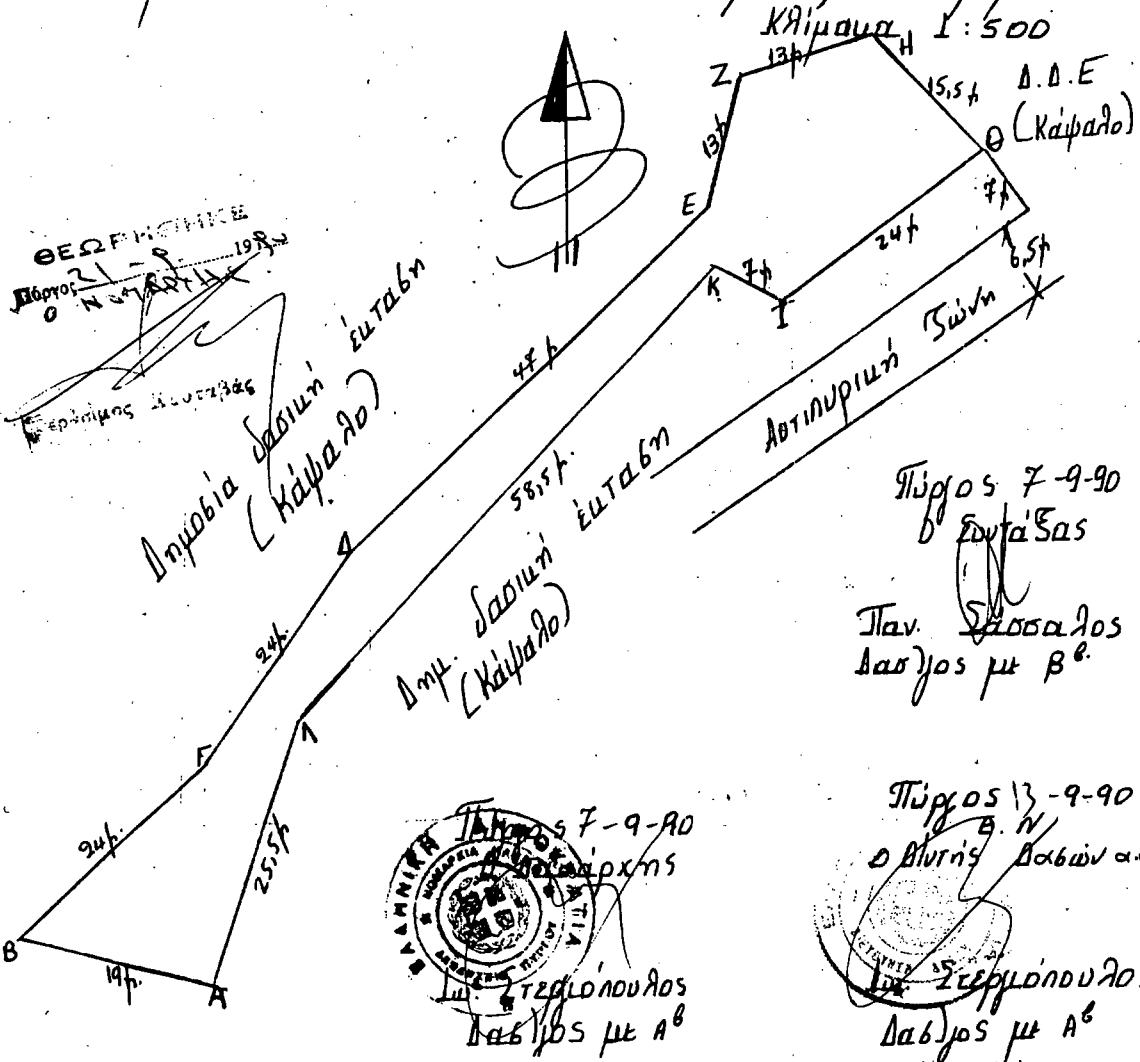 Κλίμακα 1:500
13μ
H
Z
15,5μ
Δ.Δ.Ε
(Κάψαλο)
Θ
13μ
7μ
E
24μ
6,5μ
K
7μ
I
ΘΕΩΡΗΘΗΚΕ
21-9 19
Πύργος
Ο ΝΟΜΑΡΧΗΣ
Δημοσία δασική έκταση
(Κάψαλο)
47μ
58,5μ.
Αντιπυρική ζώνη
Δημ. δασική έκταση
(Κάψαλο)
Δ
24μ.
Λ
Γ
24μ.
25,5μ
B
19μ.
A
Πύργος 7-9-90
Ο Συντάξας
Παν. Σάσσαλος
Δασ/γος με Ββ.
Πύργος 7-9-90
Ο Δασάρχης
ΕΛΛΗΝΙΚΗ ΔΗΜΟΚΡΑΤΙΑ
Στεργιόπουλος
Δασ/γος με Αβ
Πύργος 13-9-90
Ο Δ/ντής Δασών α.
Στεργιόπουλο
Δασ/γος με Αβ